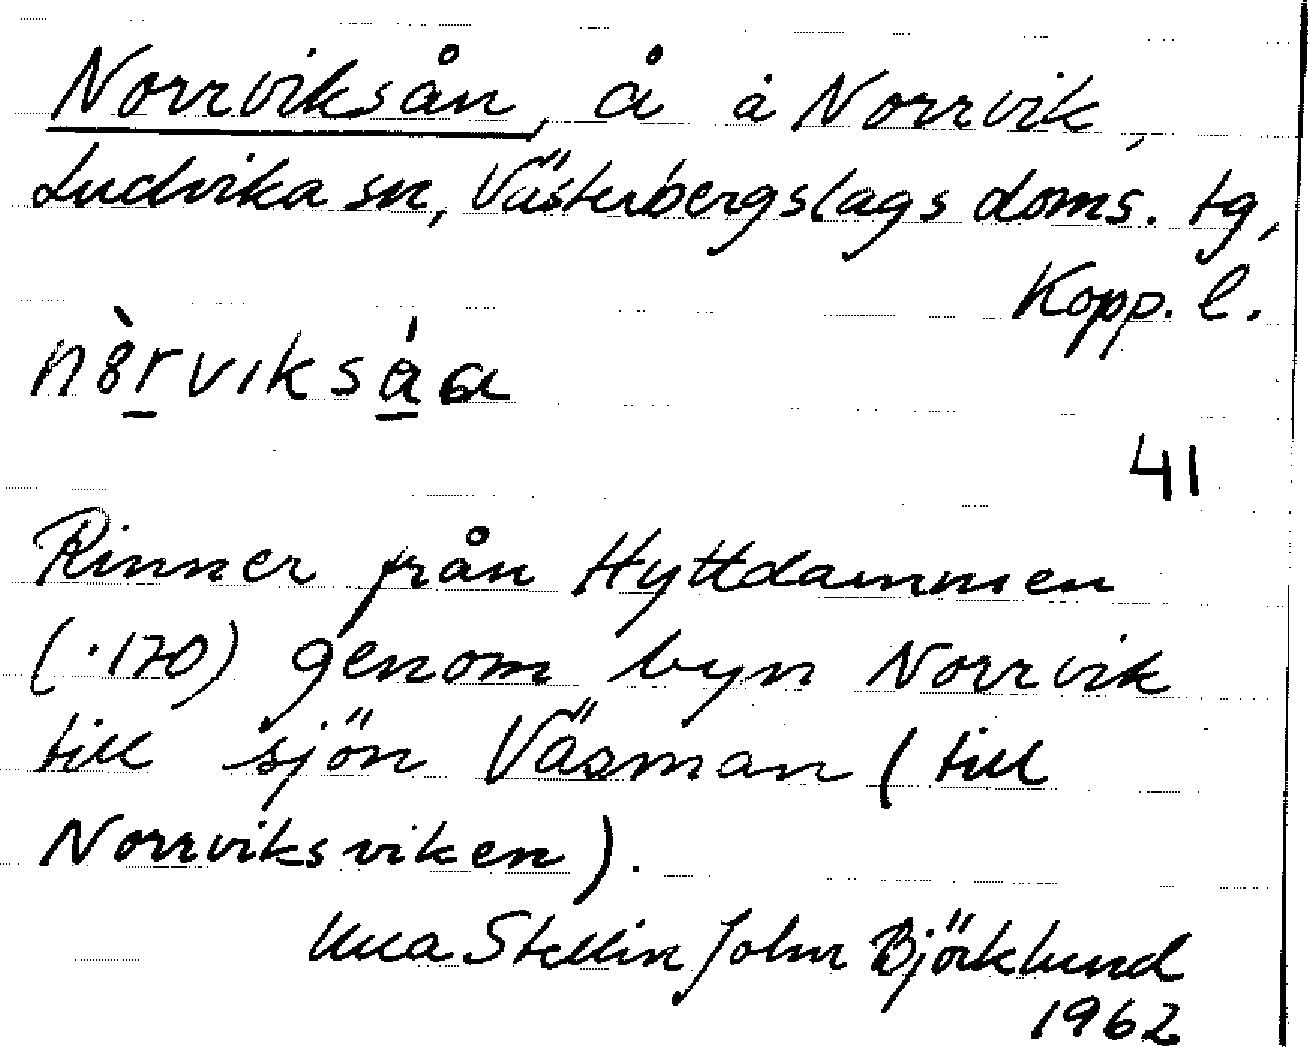 Norrviksån, å å Norrvik,
Ludvika sn, Västerbergslags doms. tg,
Kopp. l.
nòrviksáa
41
Rinner från Hyttdammen
(.170) genom byn Norrvik
till sjön Väsman (till
Norrviksviken).
Ulla Stellin John Björklund
1962